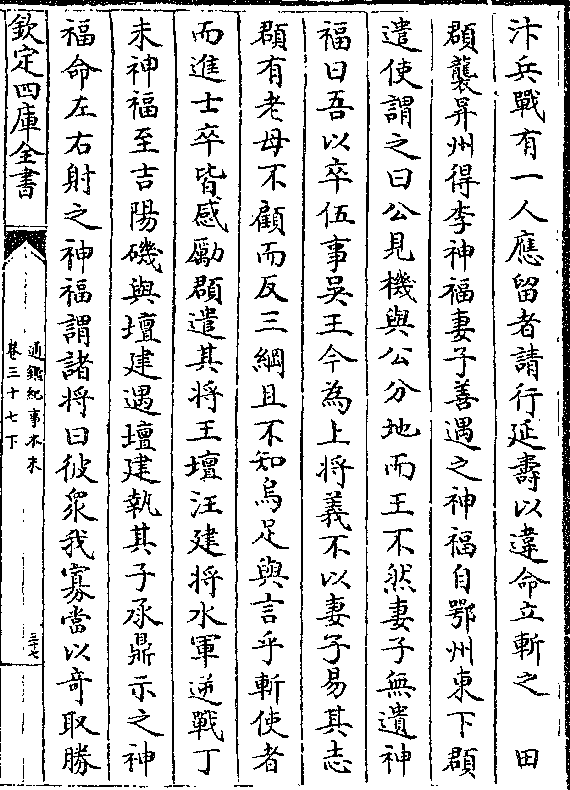 汴兵戰有一人應留者請行延壽以違命立斬之　田
頵襲昇州得李神福妻子善遇之神福自鄂州東下頵
遣使謂之曰公見機與公分地而王不然妻子無遺神
福曰吾以卒伍事吳王今為上將義不以妻子易其志
頵有老母不顧而反三綱且不知烏足與言乎斬使者
而進士卒皆感勵頵遣其將王壇汪建將水軍逆戰丁
未神福至吉陽磯與壇建遇壇建執其子承鼎示之神
福命左右射之神福謂諸將曰彼衆我寡當以竒取勝
欽定四庫全書
通鑑紀事本末
卷三十七下
三七